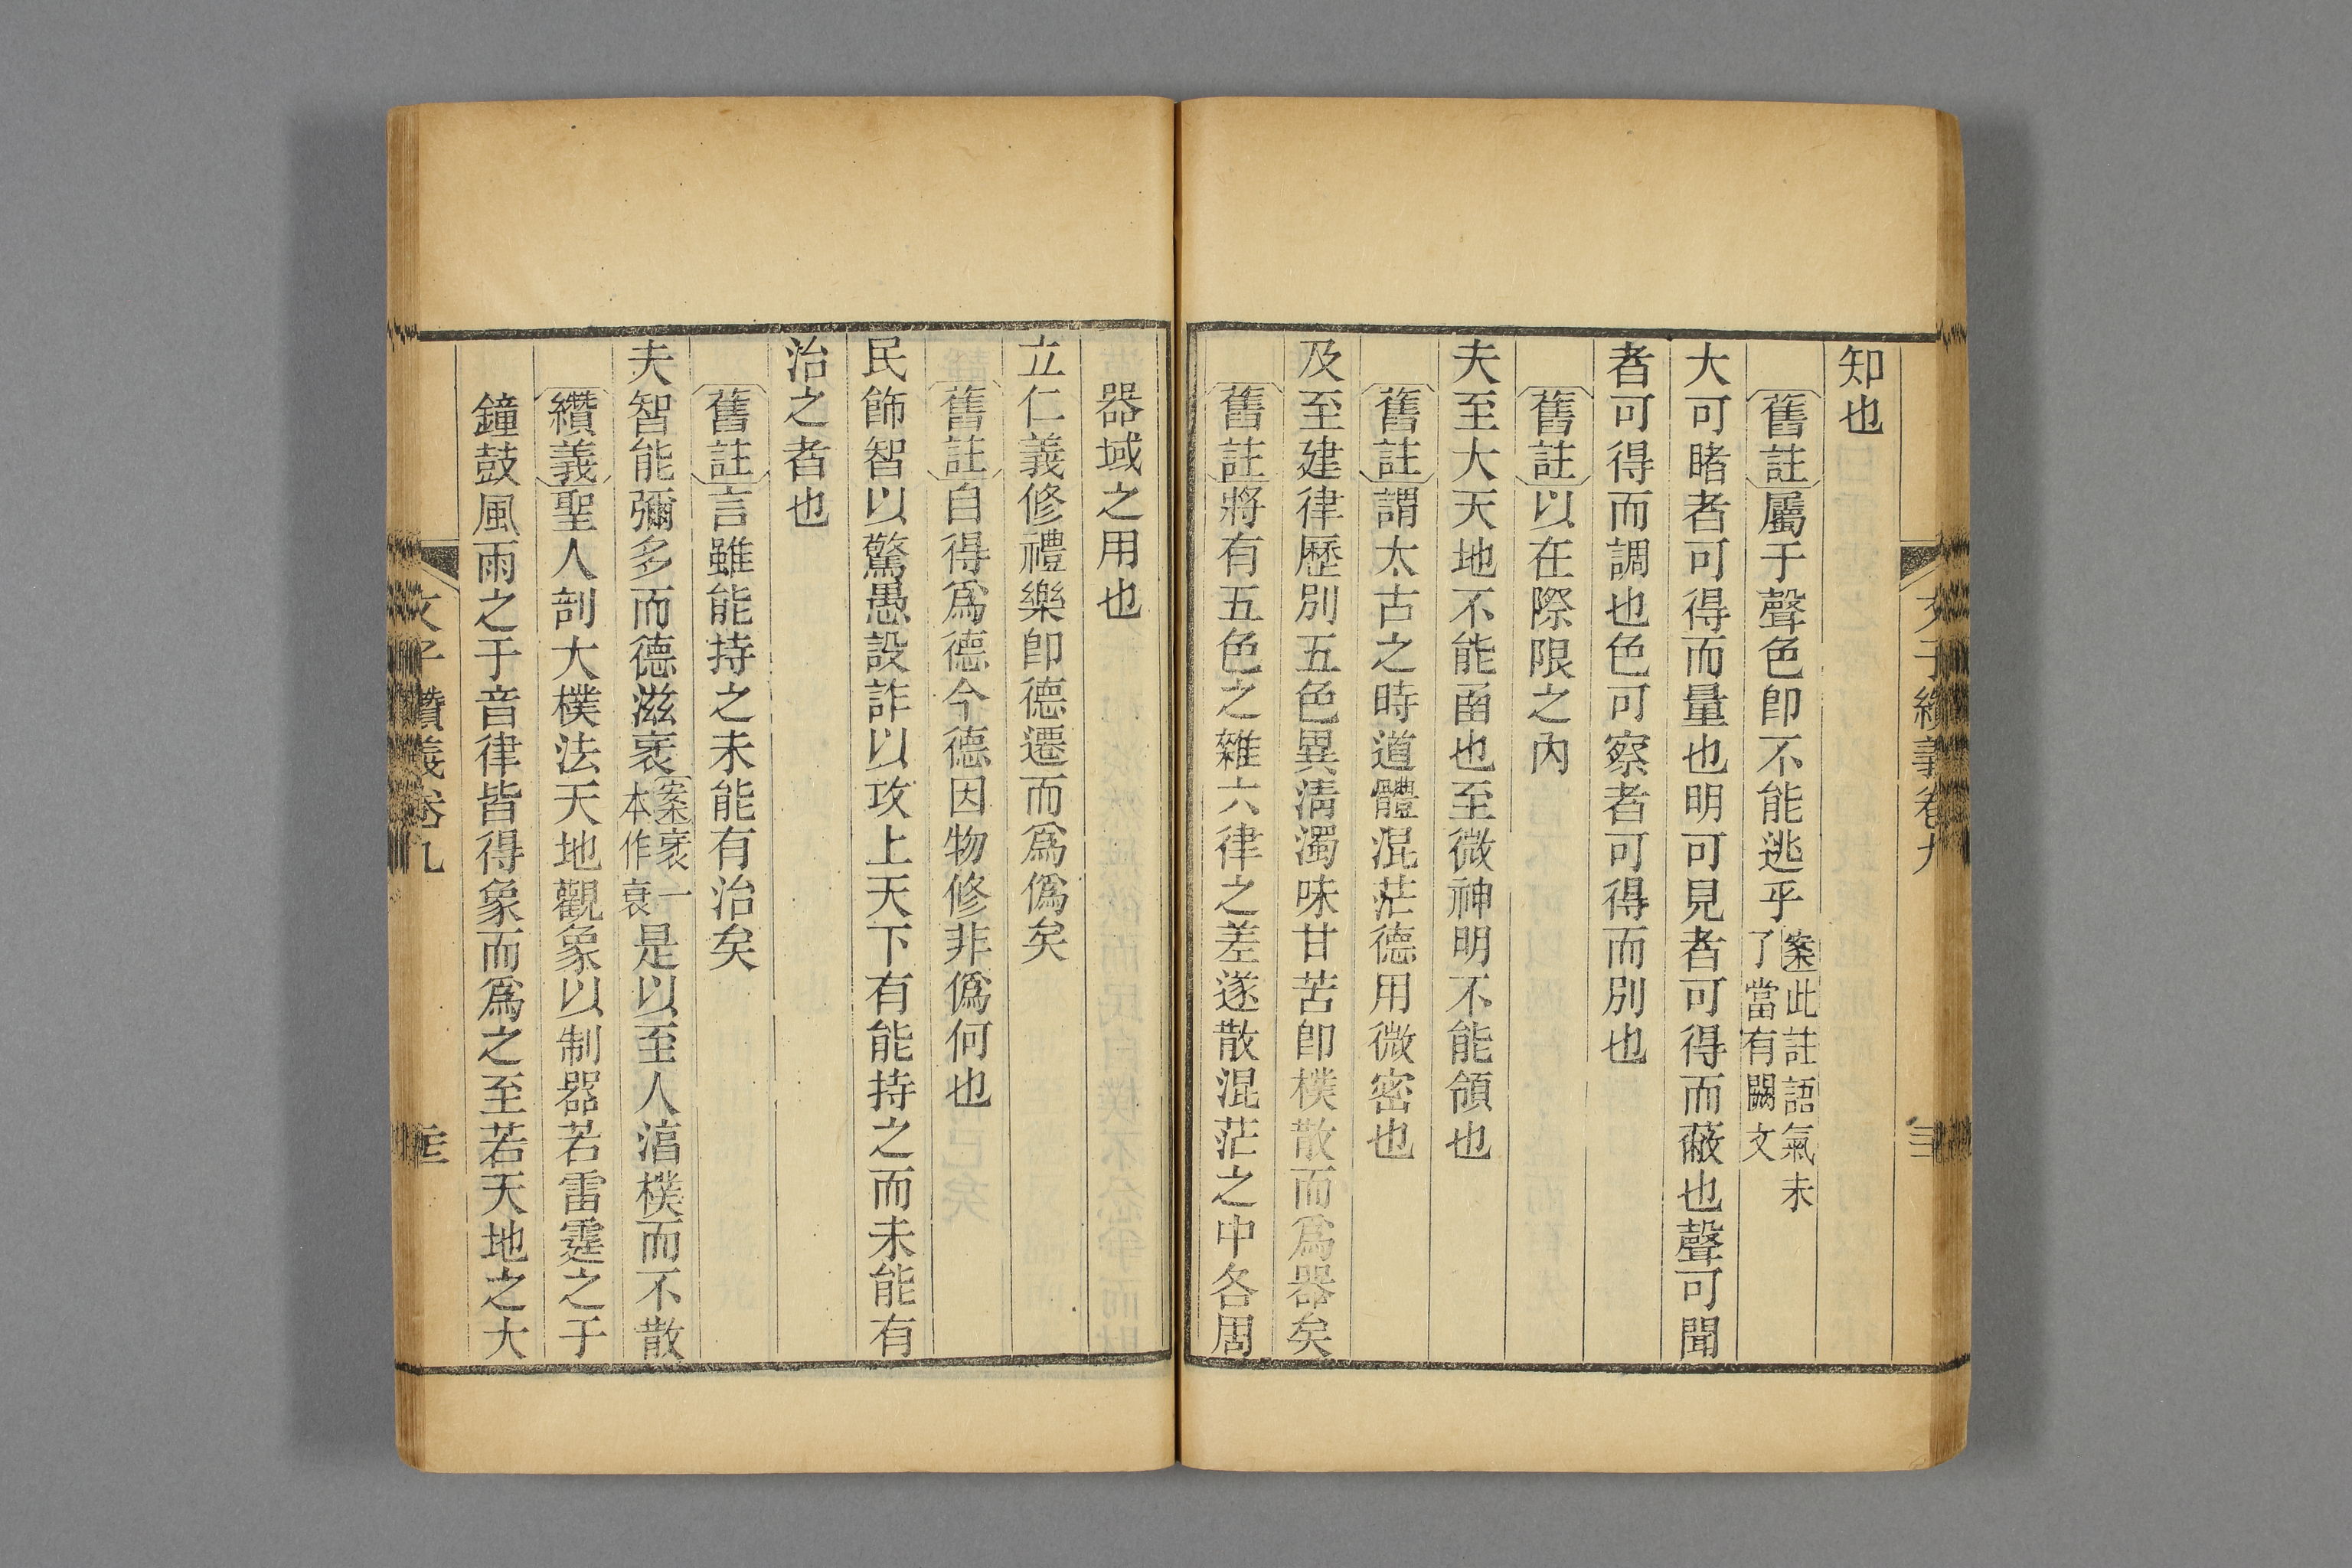 知也
舊註屬于聲色卽不能逃乎案此註語氣未了當有闕文
大可睹者可得而量也明可見者可得而蔽也聲可聞
者可得而調也色可察者可得而別也
舊註以在際限之內
夫至大天地不能函也至微神明不能領也
舊註謂太古之時道體混茫德用微密也
及至建律歷別五色異淸濁味甘苦卽樸散而爲器矣
舊註將有五色之雜六律之差遂散混茫之中各周
器域之用也
立仁義修禮樂卽德遷而爲僞矣
舊註自得爲德今德因物修非僞何也
民飾智以驚愚設詐以攻上天下有能持之而未能有
治之者也
舊註言雖能持之未能有治矣
夫智能彌多而德滋衮案衮一本作衰是以至人湻樸而不散
纘義聖人剖大樸法天地觀象以制器若雷霆之于
鐘鼓風雨之于音律皆得象而爲之至若天地之大
文子纘義卷九